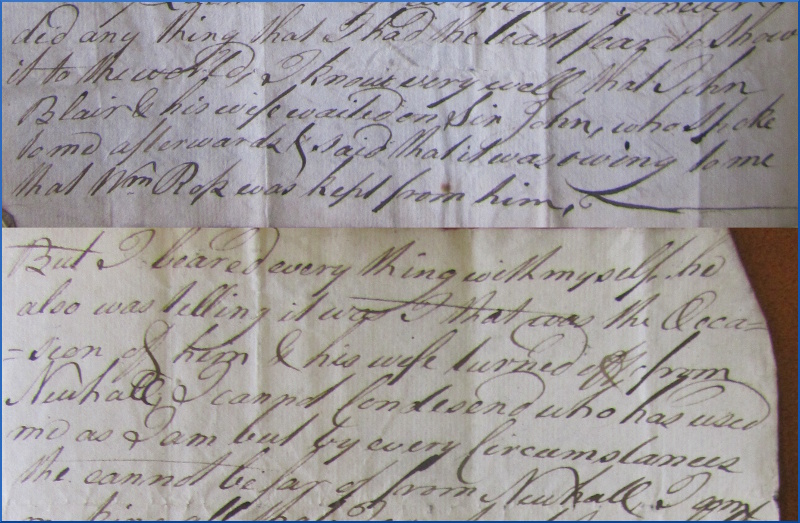 that I never
did any thing that I had the least fear to show
it to the world, I know very well that John
Blair & his wife waited on Sir John, who spoke
to me afterwards & said that it was owing to me
that Wm Ross was kept from him,
But I beared every thing with myself he
also was telling it was I that was the Occa=
=sion of him & his wife turned off from
Newhall, I cannot Condesend who has used
me as I am but by every Circumstances
the cannot be far of from Newhall, I am
making all that